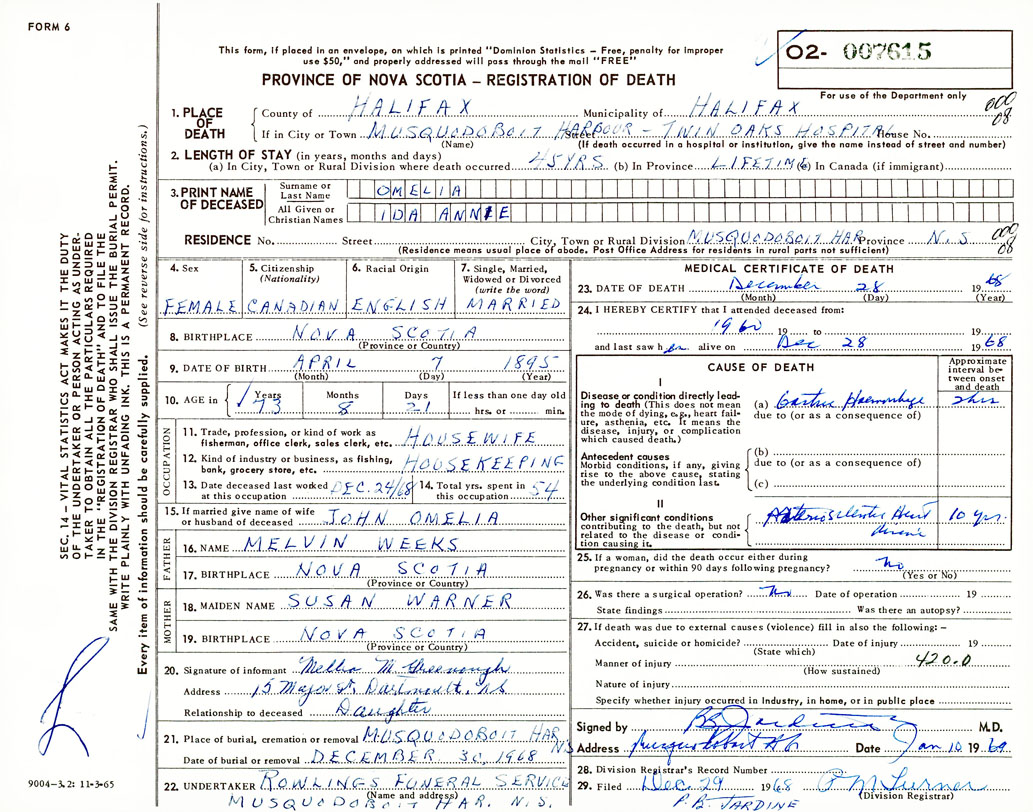 FORM 6
This form, if placed in an envelope, on which is printed "Dominion Statistics – Free, penalty for improper
use $50," and properly addressed will pass through the mail "FREE"
PROVINCE OF NOVA SCOTIA – REGISTRATION OF DEATH
02- 007615
For use of the Department only
1. PLACE OF DEATH
County of HALIFAX Municipality of HALIFAX 000 08
If in City or Town MUSQUODOBOIT HARBOUR – TWIN OAKS HOSPITAL Street House No.
(Name) (If death occurred in a hospital or institution, give the name instead of street and number)
2. LENGTH OF STAY (in years, months and days)
(a) In City, Town or Rural Division where death occurred 45 YRS (b) In Province LIFETIME (c) In Canada (if immigrant)
3. PRINT NAME OF DECEASED
Surname or Last Name OMELIA
All Given or Christian Names IDA ANNIE
RESIDENCE No. Street City, Town or Rural Division MUSQUODOBOIT HAR Province N.S 000 08
(Residence means usual place of abode. Post Office Address for residents in rural parts not sufficient)
4. Sex FEMALE
5. Citizenship (Nationality) CANADIAN
6. Racial Origin ENGLISH
7. Single, Married, Widowed or Divorced (write the word) MARRIED
8. BIRTHPLACE NOVA SCOTIA
(Province or Country)
9. DATE OF BIRTH APRIL 7 1895
(Month) (Day) (Year)
10. AGE in Years 73 Months 8 Days 21 If less than one day old
hrs. or min.
OCCUPATION
11. Trade, profession, or kind of work as
fisherman, office clerk, sales clerk, etc. HOUSEWIFE
12. Kind of industry or business, as fishing,
bank, grocery store, etc. HOUSEKEEPING
13. Date deceased last worked at this occupation DEC. 24/68 14. Total yrs. spent in this occupation 54
15. If married give name of wife
or husband of deceased JOHN OMELIA
FATHER
16. NAME MELVIN WEEKS
17. BIRTHPLACE NOVA SCOTIA
(Province or Country)
MOTHER
18. MAIDEN NAME SUSAN WARNER
19. BIRTHPLACE NOVA SCOTIA
(Province or Country)
20. Signature of informant M. Greenough
Address 15 Major St, Dartmouth, NS
Relationship to deceased Daughter
21. Place of burial, cremation or removal MUSQUODOBOIT HAR NS
Date of burial or removal DECEMBER 30, 1968
22. UNDERTAKER ROWLINGS FUNERAL SERVICE
(Name and address)
MUSQUODOBOIT HAR. N.S.
MEDICAL CERTIFICATE OF DEATH
23. DATE OF DEATH December 28 1968
(Month) (Day) (Year)
24. I HEREBY CERTIFY that I attended deceased from:
1960 19 to
and last saw her alive on Dec 28 1968
CAUSE OF DEATH
Approximate interval between onset and death
I
Disease or condition directly leading to death (This does not
mean the mode of dying, e.g., heart failure, asthenia, etc. It means the
disease, injury, or complication
which caused death.)
(a) Gastric Haemorrhage 2 hrs
due to (or as a consequence of)
Antecedent causes
Morbid conditions, if any, giving
rise to the above cause, stating
the underlying condition last.
(b)
due to (or as a consequence of)
(c)
II
Other significant conditions
contributing to the death, but not
related to the disease or condition
causing it.
Arteriosclerotic Heart disease 10 yrs.
25. If a woman, did the death occur either during
pregnancy or within 90 days following pregnancy? no
(Yes or No)
26. Was there a surgical operation? No Date of operation 19
State findings Was there an autopsy?
27. If death was due to external causes (violence) fill in also the following: –
Accident, suicide or homicide? Date of injury 19
(State which)
Manner of injury 420.0
(How sustained)
Nature of injury
Specify whether injury occurred in Industry, in home, or in public place
Signed by B Jardine M.D.
Address Musquodoboit Hbr Date Jan 10 1969
28. Division Registrar's Record Number
29. Filed Dec 29 1968 P M Turner
(Division Registrar)
P. B. JARDINE
SEC. 14 – VITAL STATISTICS ACT MAKES IT THE DUTY
OF THE UNDERTAKER OR PERSON ACTING AS UNDER-
TAKER TO OBTAIN ALL THE PARTICULARS REQUIRED
IN THE "REGISTRATION OF DEATH" AND TO FILE THE
SAME WITH THE DIVISION REGISTRAR WHO SHALL ISSUE THE BURIAL PERMIT.
WRITE PLAINLY WITH UNFADING INK. THIS IS A PERMANENT RECORD.
Every item of information should be carefully supplied. (See reverse side for instructions.)
9004–3.2: 11-3-65